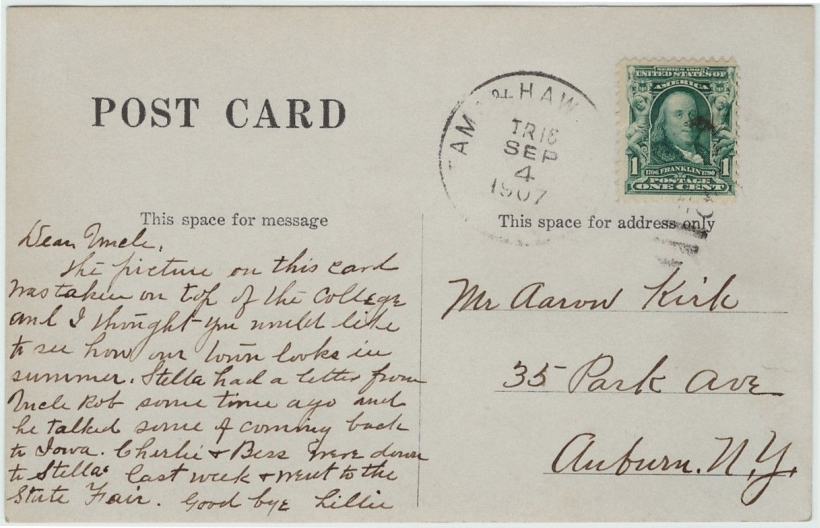 POST CARD
TAMA & HAW
TR 16
SEP
4
1907
SERIES 1902
UNITED STATES OF
AMERICA
1 1
1706 FRANKLIN 1790
POSTAGE
ONE CENT
This space for message
This space for address only
Dear Uncle,
The picture on this card
was taken on top of the College
and I thought you would like
to see how our town looks in
summer. Stella had a letter from
Uncle Rob some time ago and
he talked some of coming back
to Iowa. Charlie + Bess were down
to Stellas last week + went to the
State Fair. Good bye Lillie
Mr Aaron Kirk
35 Park Ave
Auburn. N.Y.